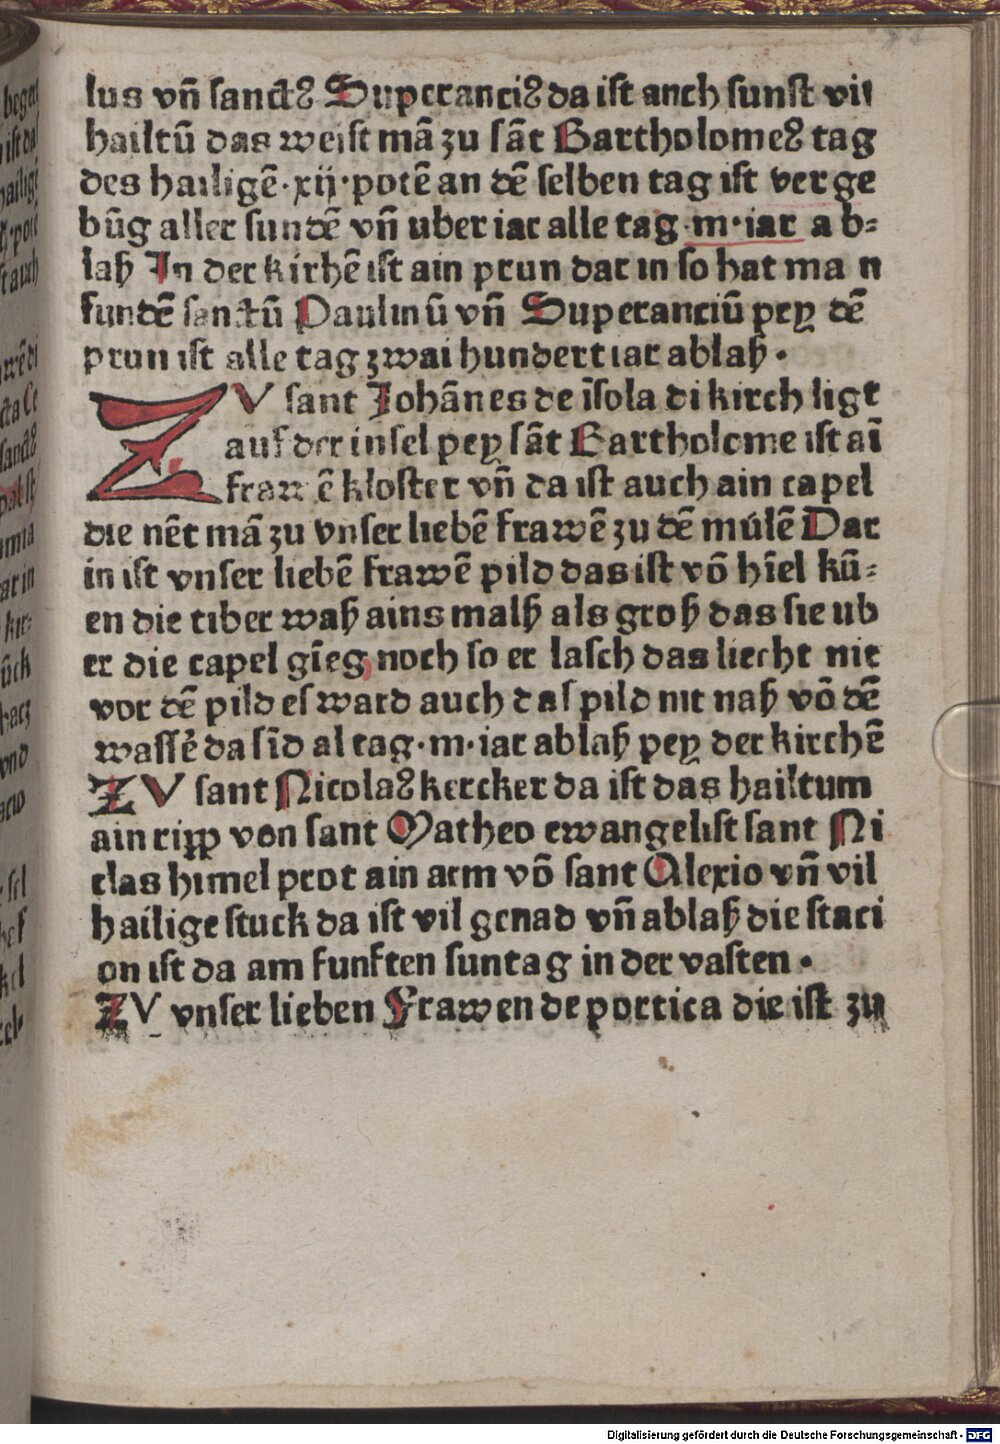 lus vñ sanctꝰ Superanciꝰ da ist auch sunst vil
hailtū das weist mā zu sāt Bartholomeꝰ tag
des hailigē·xij·potē an dē selben tag ist verge
būg aller sundē vñ uber iar alle tag·m·iar ab⸗
laß In der kirhē ist ain prun dar in so hat man
fundē sanctū Paulinū vñ Superanciū pey dē
prun ist alle tag zwai hundert iar ablaß·
ZV sant Johānes de īsola di kirch ligt
auf der insel pey sāt Bartholome ist aī
frawē kloster vñ da ist auch ain capel
die nēt mā zu vnser liebē frawē zu dē múlē Dar
in ist vnser liebē frawē pild das ist vō hīel kū⸗
en die tiber waß ains malß als groß das sie ub
er die capel gīeg noch so er lasch das liecht nit
vor dē pild es ward auch das pild nit naß vō dē
wasſẻ da sīd al tag·m·iar ablaß pey der kirchē
ZV sant Nicolaꝰ kercker da ist das hailtum
ain ripp von sant Matheo ewangelist sant Ni
clas himel prot ain arm vō sant Alexio vñ vil
hailige stuck da ist vil genad vñ ablaß die staci
on ist da am funften suntag in der vasten·
ZV vnser lieben Frawen de portica die ist zu
Digitalisierung gefördert durch die Deutsche Forschungsgemeinschaft - DFG